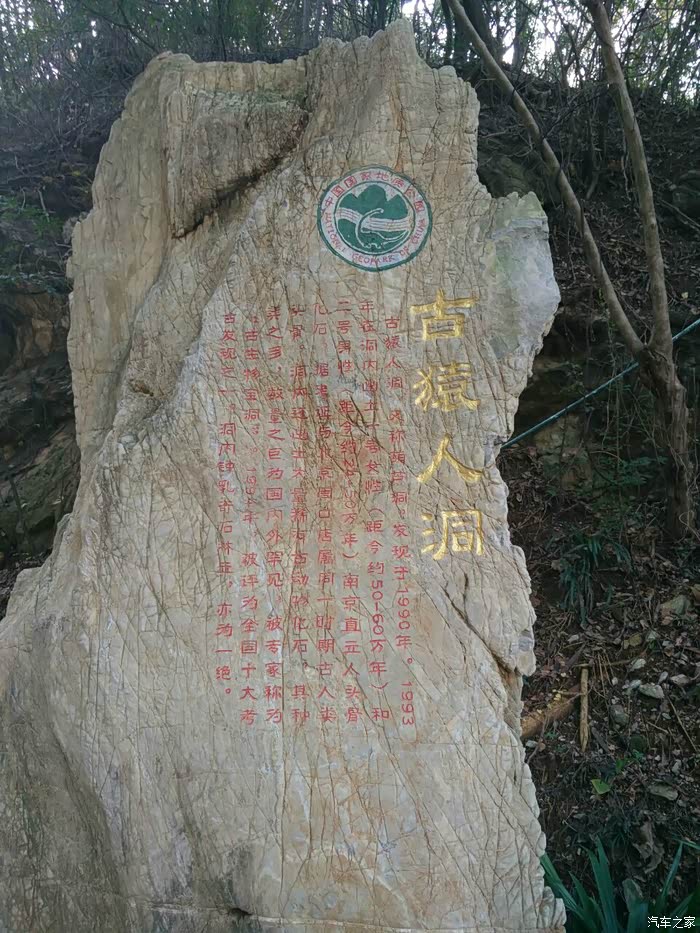 中国国家地质公园
NATIONAL GEOPARK OF CHINA
古猿人洞
古猿人洞，又称葫芦洞。发现于1990年。1993
年在洞内出土一号女性（距今约50-60万年）和
二号男性（距今约 万年）南京直立人头骨
化石，据考证与北京周口店属同一时期古人类
头骨。洞内还出土大量 古动物化石，其种
类之多，数量之巨为国内外罕见，被专家称为
“古生物宝洞”。 年，被评为全国十大考
古发现之一。洞内钟乳奇石林立，亦为一绝。
汽车之家